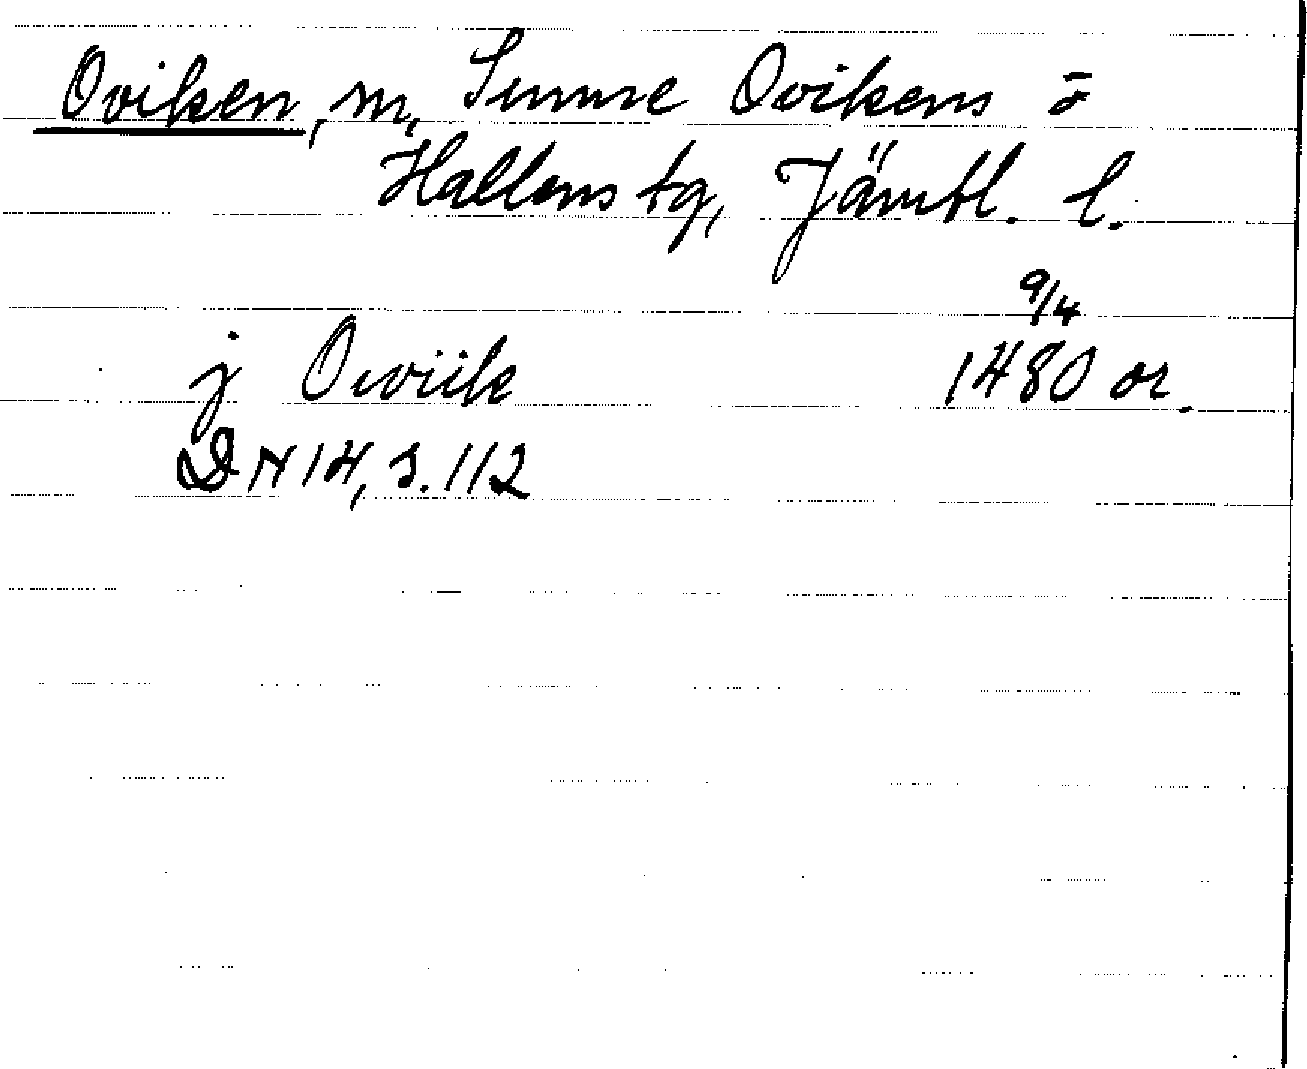 Oviken, m, Sunne Ovikens o
Hallens tg, Jämtl. l.
9/4
j Owiik 1480 or.
DN 14, s. 112